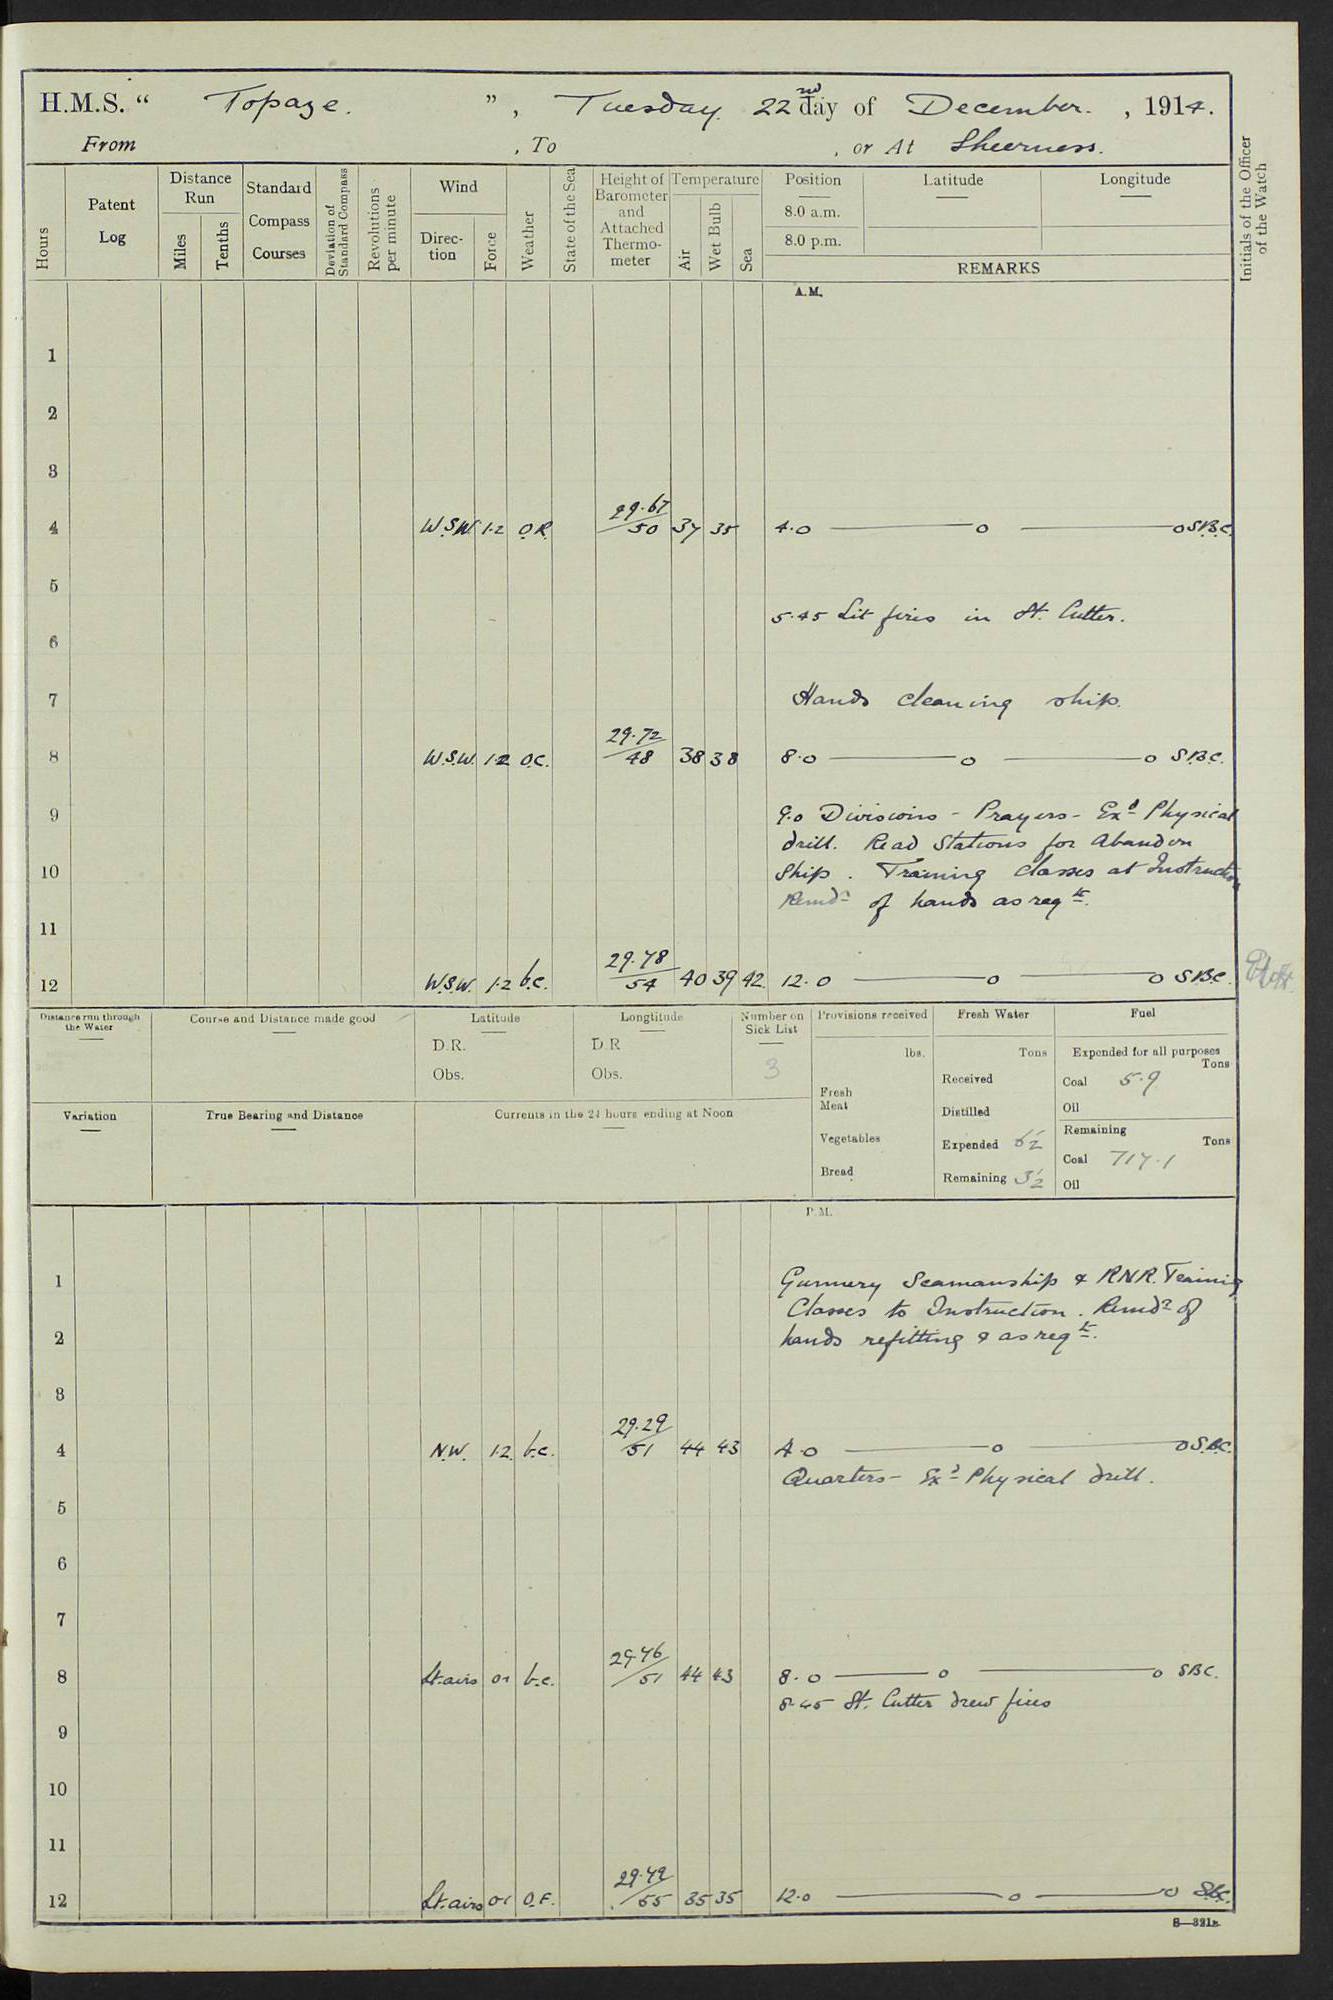 H.M.S. “ Topaze. ” , Tuesday 22nd day of December. , 1914.
From , To , or At Sheerness.
Hours
Patent Log
Distance Run
Miles
Tenths
Standard Compass Courses
Deviation of Standard Compass
Revolutions per minute
Wind
Direction
Force
Weather
State of the Sea
Height of Barometer and Attached Thermometer
Temperature
Air
Wet Bulb
Sea
Position
8.0 a.m.
8.0 p.m.
Latitude
Longitude
REMARKS
Initials of the Officer of the Watch
A.M.
1
2
3
4 W.S.W. 1·2 O.R. 29·67/50 37 35 4·0 ——— o ——— o S.B.C.
5
5·45 Lit fires in St. Cutter.
6
7 Hands cleaning ship.
8 W.S.W. 1·2 O.C. 29·72/48 38 38 8·0 ——— o ——— o S.B.C.
9 9·0 Divisions - Prayers - Exd Physical
drill. Read Stations for Abandon
10 Ship. Training classes at Instruction
Remdr of hands as reqte.
11
12 W.S.W. 1·2 b.c. 29·78/54 40 39 42 12·0 ——— o ——— o S.B.C.
Distance run through the Water
Course and Distance made good
Latitude
D.R.
Obs.
Longtitude
D R
Obs.
Number on Sick List
3
Provisions received
lbs.
Fresh Meat
Vegetables
Bread
Fresh Water
Tons
Received
Distilled
Expended 6½
Remaining 3½
Fuel
Expended for all purposes
Tons
Coal 5·9
Oil
Remaining
Tons
Coal 717·1
Oil
Variation
True Bearing and Distance
Currents in the 24 hours ending at Noon
P.M.
1 Gunnery Seamanship & RNR. Training
Classes to Instruction. Remdr of
2 hands refitting & as reqte.
3
4 N.W. 1·2 b.c. 29·29/51 44 43 4·0 ——— o ——— o S.B.C.
Quarters - Exd Physical drill.
5
6
7
8 Lt. airs 0·1 b.c. 29·46/51 44 43 8·0 ——— o ——— o SBC.
8·45 St. Cutter drew fires
9
10
11
12 Lt. airs 0·1 O.F. 29·49/55 35 35 12·0 ——— o ——— o S.B.C.
S—321B.